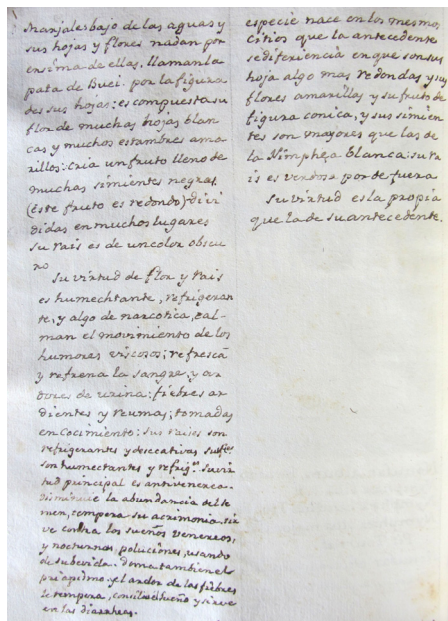 Manjales bajo de las aguas y
sus hojas y flores nadan por
ensima de ellas, llaman la
pata de Buei. por la figura
des sus hojas: es compuesta su
flor de muchas hojas blan
cas y muchos estambres ama
rillos: cria un fruto lleno de
muchas simientes negras,
(este fruto es redondo) divi
didas en muchos lugares
su rais es de un color obscu
ro
Su virtud de flor y rais
es humechtante, refrigeran
te, y algo de narcotica, cal-
man el movimiento de los
humores viscosos; refresca
y refrena la sangre, y ar
dores de urina: fiebres ar
dientes y reumas; tomadas
en cocimiento: sus raises son
refrigerantes y desecativas sus
son humectantes y refrig.s su vir
tud principal es antivenerea.
disminuie la abundancia del se
men, tempera su acrimonia. sir
ve contra los sueños venereos,
y nocturnas poluciones, usando
de su bevida. doma tambien el
priapismo. y el ardor de las fiebres
le tempera, concilia el sueño y sirve
en las diarrheas.
especie nace en los mesmos
citios que la antecedente
se diferiencia en que son sus
hoja algo mas redondas y sus
flores amarillas y su fruto de
figura conica, y sus simien
tes son mayores que las de
la Nimphea blanca: su ra
is es verdosa por de fuera
Su virtud es la propia
que la de su antecedente.